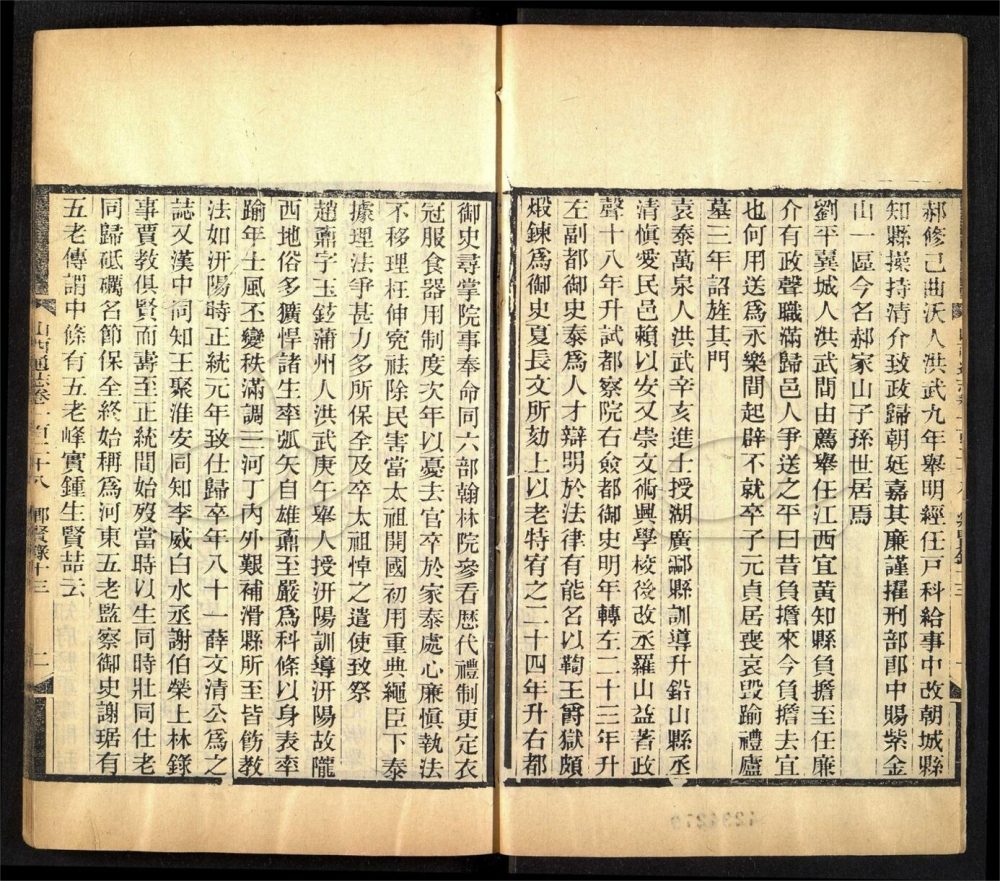 郝修己曲沃人洪武九年舉明經任戸科給事中改朝城縣
知縣操持清介致政歸朝廷嘉其廉謹擢刑部郎中賜紫金
山一區今名郝家山子孫世居焉
劉平冀城人洪武間由薦舉任江西宜黃知縣負擔至任廉
介有政聲職滿歸邑人爭送之平曰昔負擔來今負擔去宜
也何用送爲永樂間起辟不就卒子元貞居喪哀毀踰禮廬
墓三年詔旌其門
袁泰萬泉人洪武辛亥進士授湖廣酃縣訓導升鉛山縣丞
清愼愛民邑賴以安又崇文術興學校後改丞羅山益著政
聲十八年升試都察院右僉都御史明年轉左二十三年升
左副都御史泰爲人才辯明於法律有能名以鞫王爵獄頗
煅鍊爲御史夏長文所劾上以老特宥之二十四年升右都
御史尋掌院事奉命同六部翰林院參看歷代禮制更定衣
冠服食器用制度次年以憂去官卒於家泰處心廉愼執法
不移理枉伸寃祛除民害當太祖開國初用重典繩臣下泰
據理法爭甚力多所保全及卒太祖悼之遣使致祭
趙鼐字玉鉉蒲州人洪武庚午舉人授汧陽訓導汧陽故隴
西地俗多獷悍諸生率弧矢自雄鼐至嚴爲科條以身表率
踰年士風丕變秩滿調三河丁內外艱補滑縣所至皆飭教
法如汧陽時正統元年致仕歸卒年八十一薛文清公爲之
誌又漢中同知王聚淮安同知李威白水丞謝伯榮上林錄
事賈教俱賢而壽至正統間始歿當時以生同時壯同仕老
同歸砥礪名節保全終始稱爲河東五老監察御史謝琚有
五老傳謂中條有五老峰實鍾生賢喆云
山西通志卷一百三十八 鄉賢錄十三 二